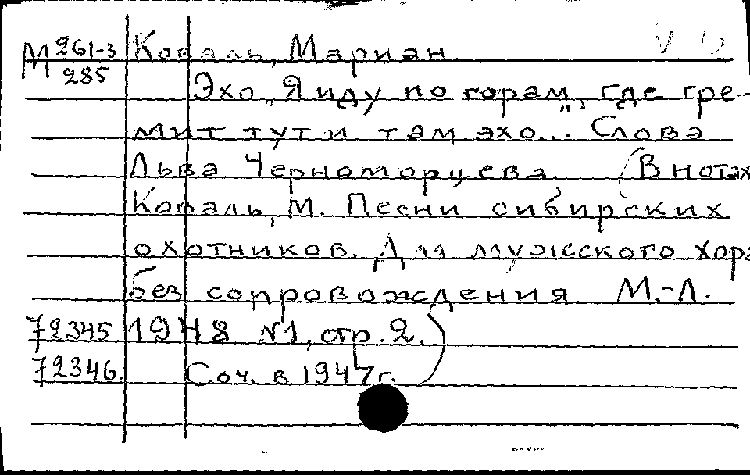 М 261-3 Коваль, Мариан
285
Эхо „Я иду по горам", где гре-
мит тут и там эхо... Слова
Льва Черноморцева (В нотах
Коваль, М. Песни сибирских
охотников. Для мужского хора
без сопровождения М.-Л.
72345 1948 №1, стр. 2.)
72346. Соч. в 1947г.